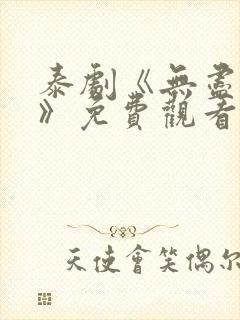 泰劇《無盡
》免費觀看
天使會笑偶尔